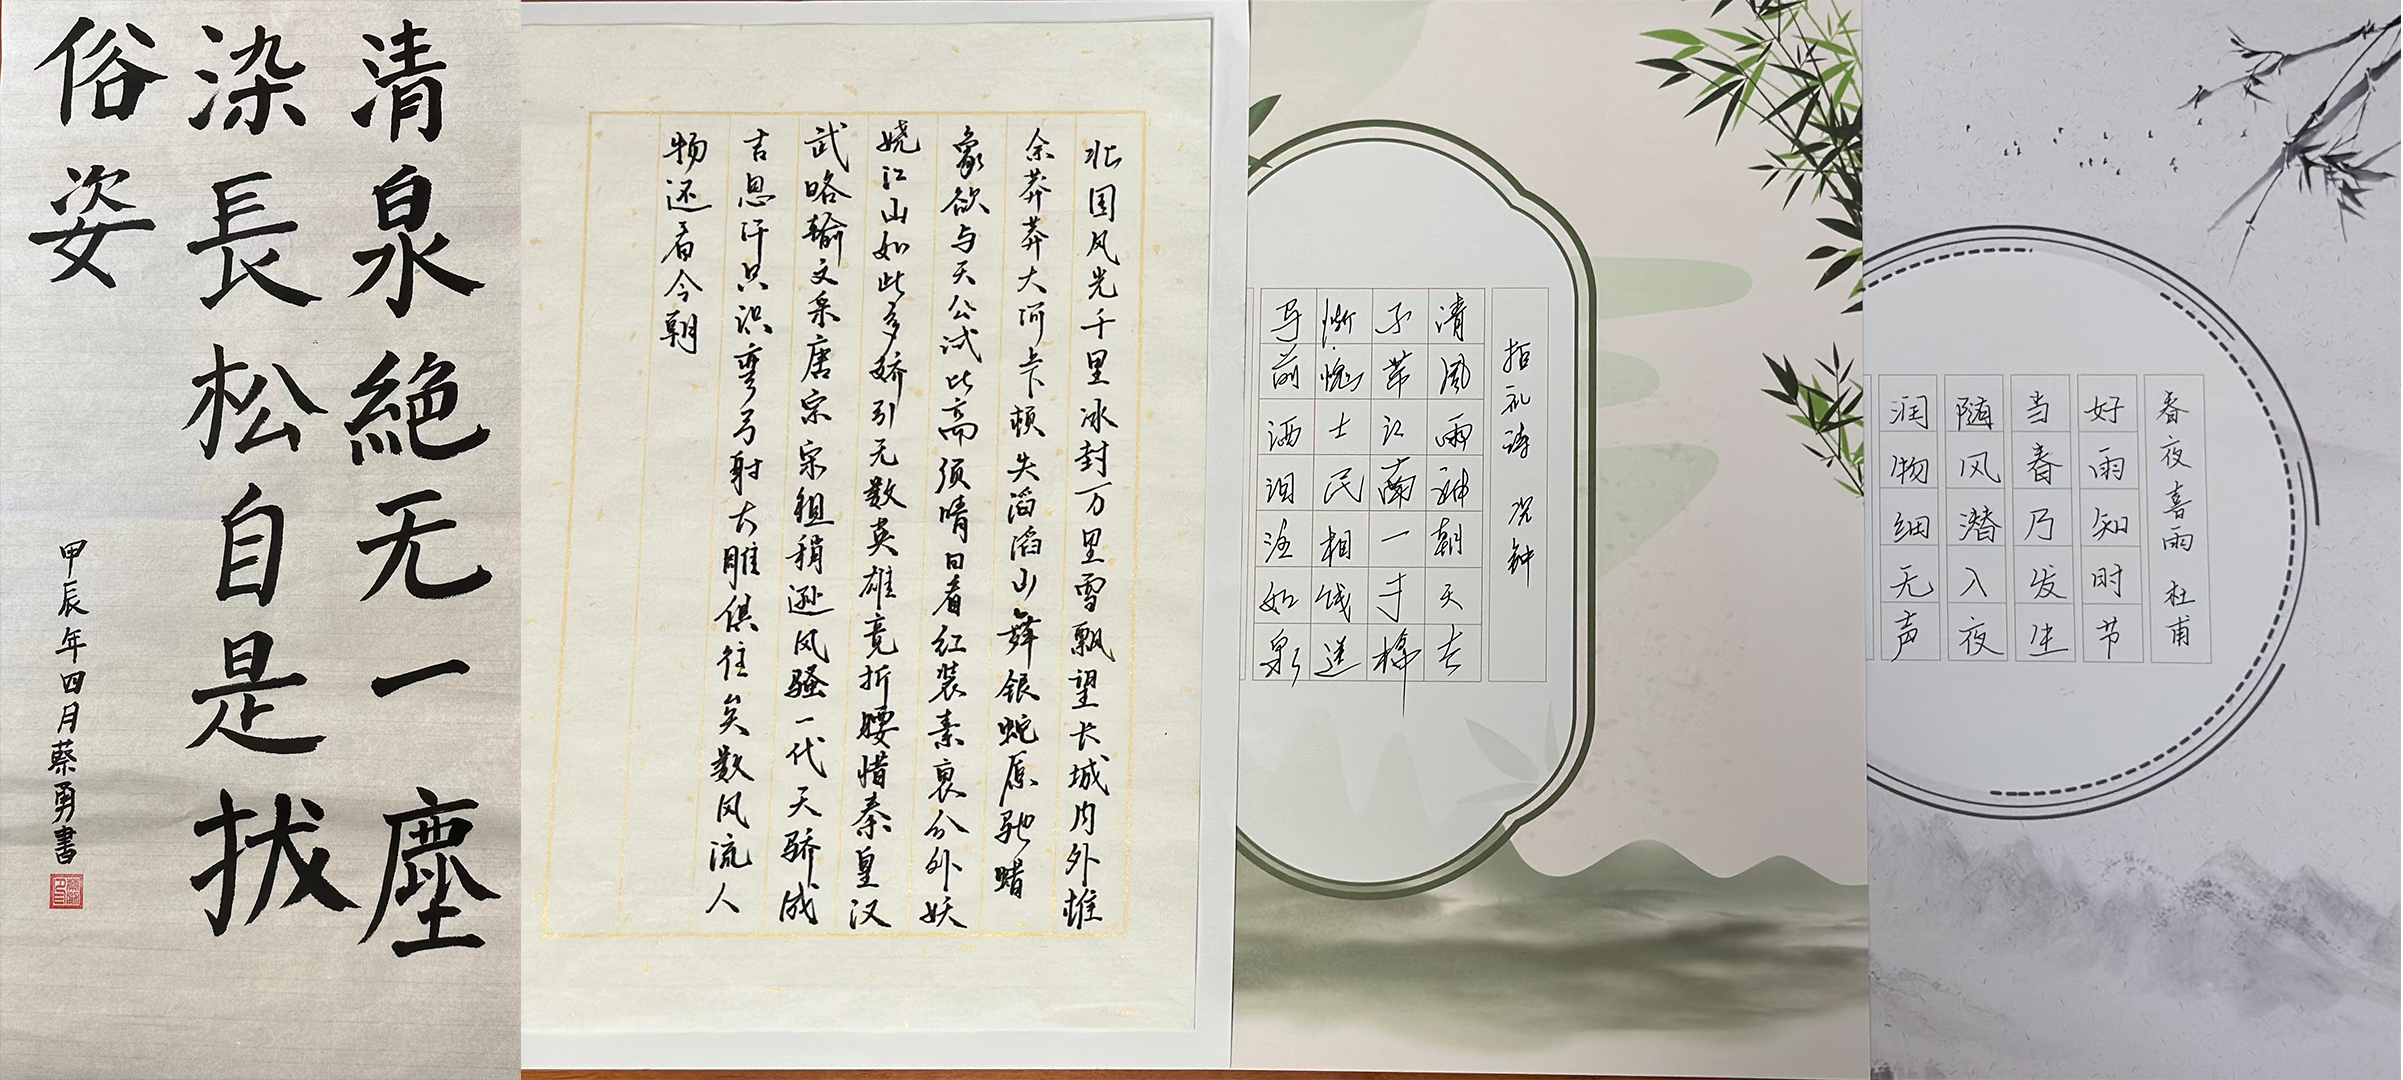 清泉絕无一塵
染長松自是拔
俗姿
甲辰年四月蔡勇書
北国风光千里冰封万里雪飘望长城内外惟
余莽莽大河上下顿失滔滔山舞银蛇原驰蜡
象欲与天公试比高须晴日看红装素裹分外妖
娆江山如此多娇引无数英雄竞折腰惜秦皇汉
武略输文采唐宗宋祖稍逊风骚一代天骄成
吉思汗只识弯弓射大雕俱往矣数风流人
物还看今朝
拒礼诗 况钟
清風两袖朝天去
不带江南一寸棉
惭愧士民相饯送
马前洒泪注如泉
春夜喜雨 杜甫
好雨知时节
当春乃发生
随风潜入夜
润物细无声